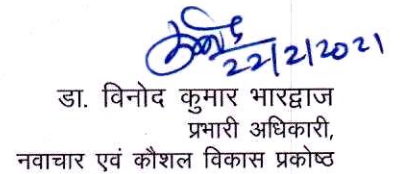 22/2/2021
डा. विनोद कुमार भारद्वाज
प्रभारी अधिकारी,
नवाचार एवं कौशल विकास प्रकोष्ठ